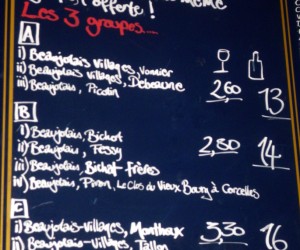 offerte ! même
Les 3 groupes....
A
i) Beaujolais Villages, Vonnier
ii) Beaujolais Villages, Debeaune
iii) Beaujolais, Picolin
2,60 13
B
i) Beaujolais, Bichot
ii) Beaujolais, Fessy
iii) Beaujolais Bichat-Frères
iv) Beaujolais, Piron, Le clos du Vieux Bourg à Corcelles
2,80 14
C
i) Beaujolais-Villages, Monthaux
ii) Beaujolais-Villages, Tallon
3,30 16